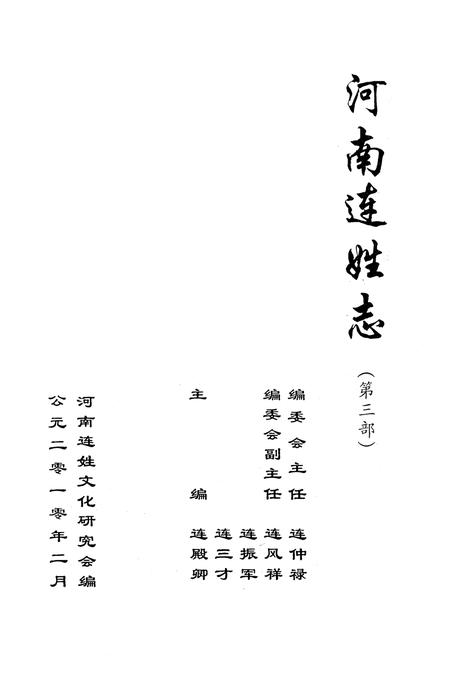 河南连姓志
(第三部)
编委会主任 连仲禄
编委会副主任 连风祥
连振军
连三才
主编 连殿卿
河南连姓文化研究会编
公元二零一零年二月